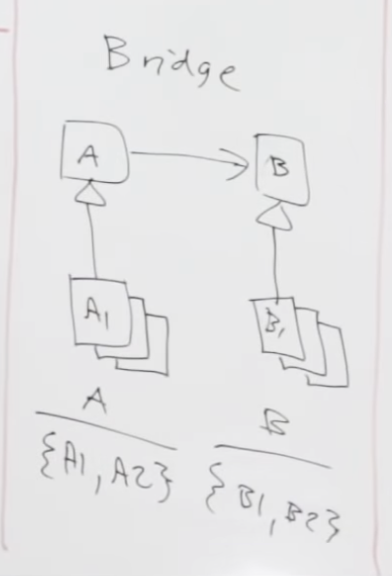 Bridge
A B
A1 B1
A B
{A1, A2} {B1, B2}